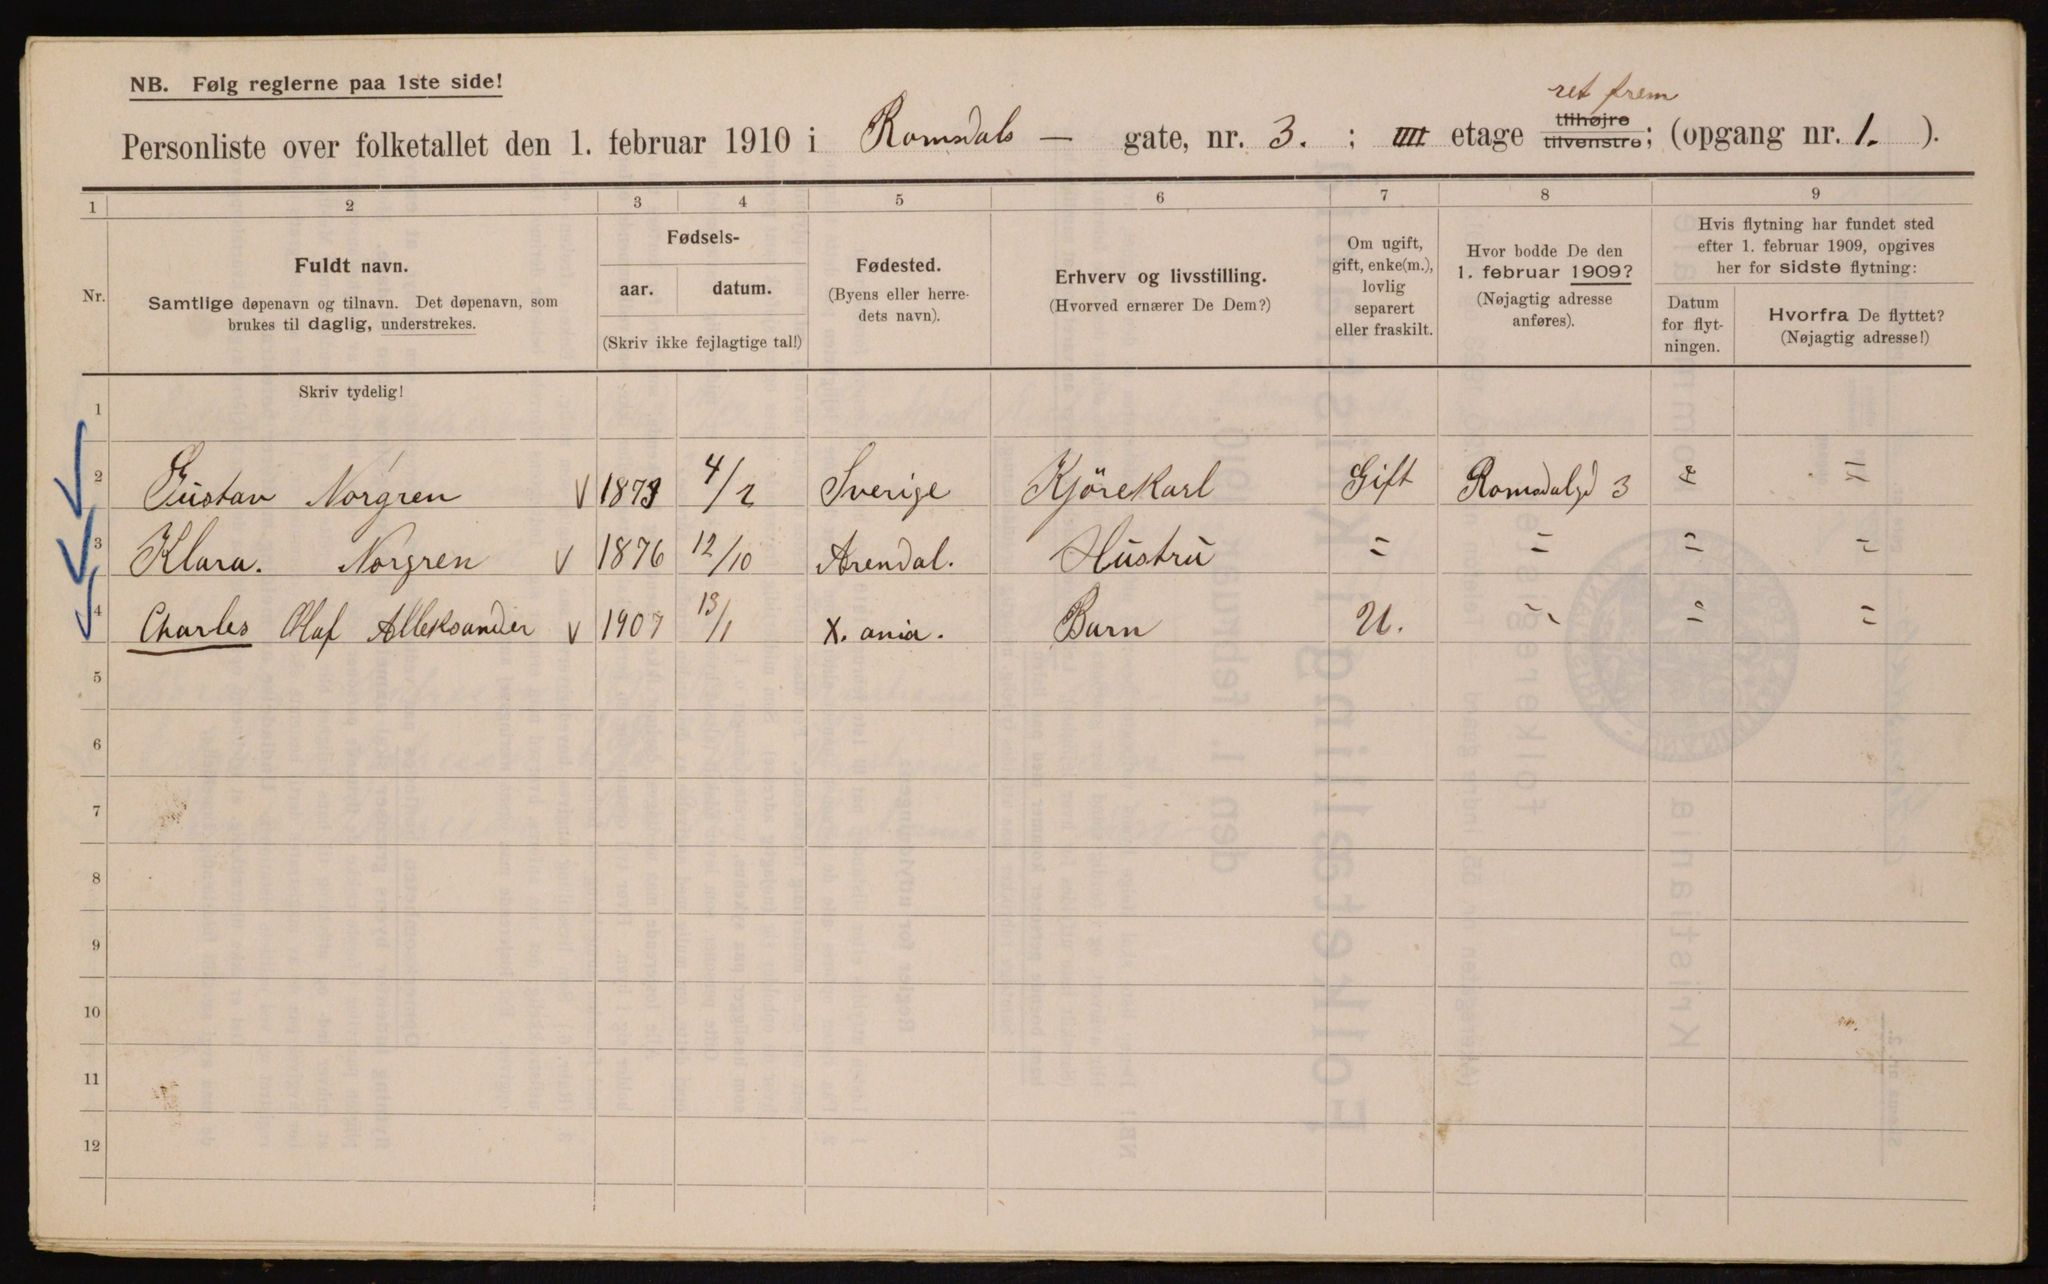 NB. Følg reglerne paa 1ste side!
ret frem
Personliste over folketallet den 1. februar 1910 i Romsdals — gate, nr. 3. ; IIII etage tilhøjre tilvenstre; (opgang nr. 1. ).
1 2 3 4 5 6 7 8 9
Nr.
Fuldt navn.
Samtlige døpenavn og tilnavn. Det døpenavn, som
brukes til daglig, understrekes.
Fødsels-
aar. datum.
(Skriv ikke fejlagtige tal!)
Fødested.
(Byens eller herre-
dets navn).
Erhverv og livsstilling.
(Hvorved ernærer De Dem?)
Om ugift,
gift, enke(m.),
lovlig
separert
eller fraskilt.
Hvor bodde De den
1. februar 1909?
(Nøjagtig adresse
anføres).
Hvis flytning har fundet sted
efter 1. februar 1909, opgives
her for sidste flytning:
Datum
for flyt-
ningen.
Hvorfra De flyttet?
(Nøjagtig adresse!)
Skriv tydelig!
1
2 Gustav Norgren V 1873 4/2 Sverige Kjörekarl Gift Romsdalgd 3 = =
3 Klara. Norgren V 1876 12/10 Arendal. Hustru = = = =
4 Charles Olaf Alleksander V 1907 13/1 X. ania. Barn U. = = =
5
6
7
8
9
10
11
12